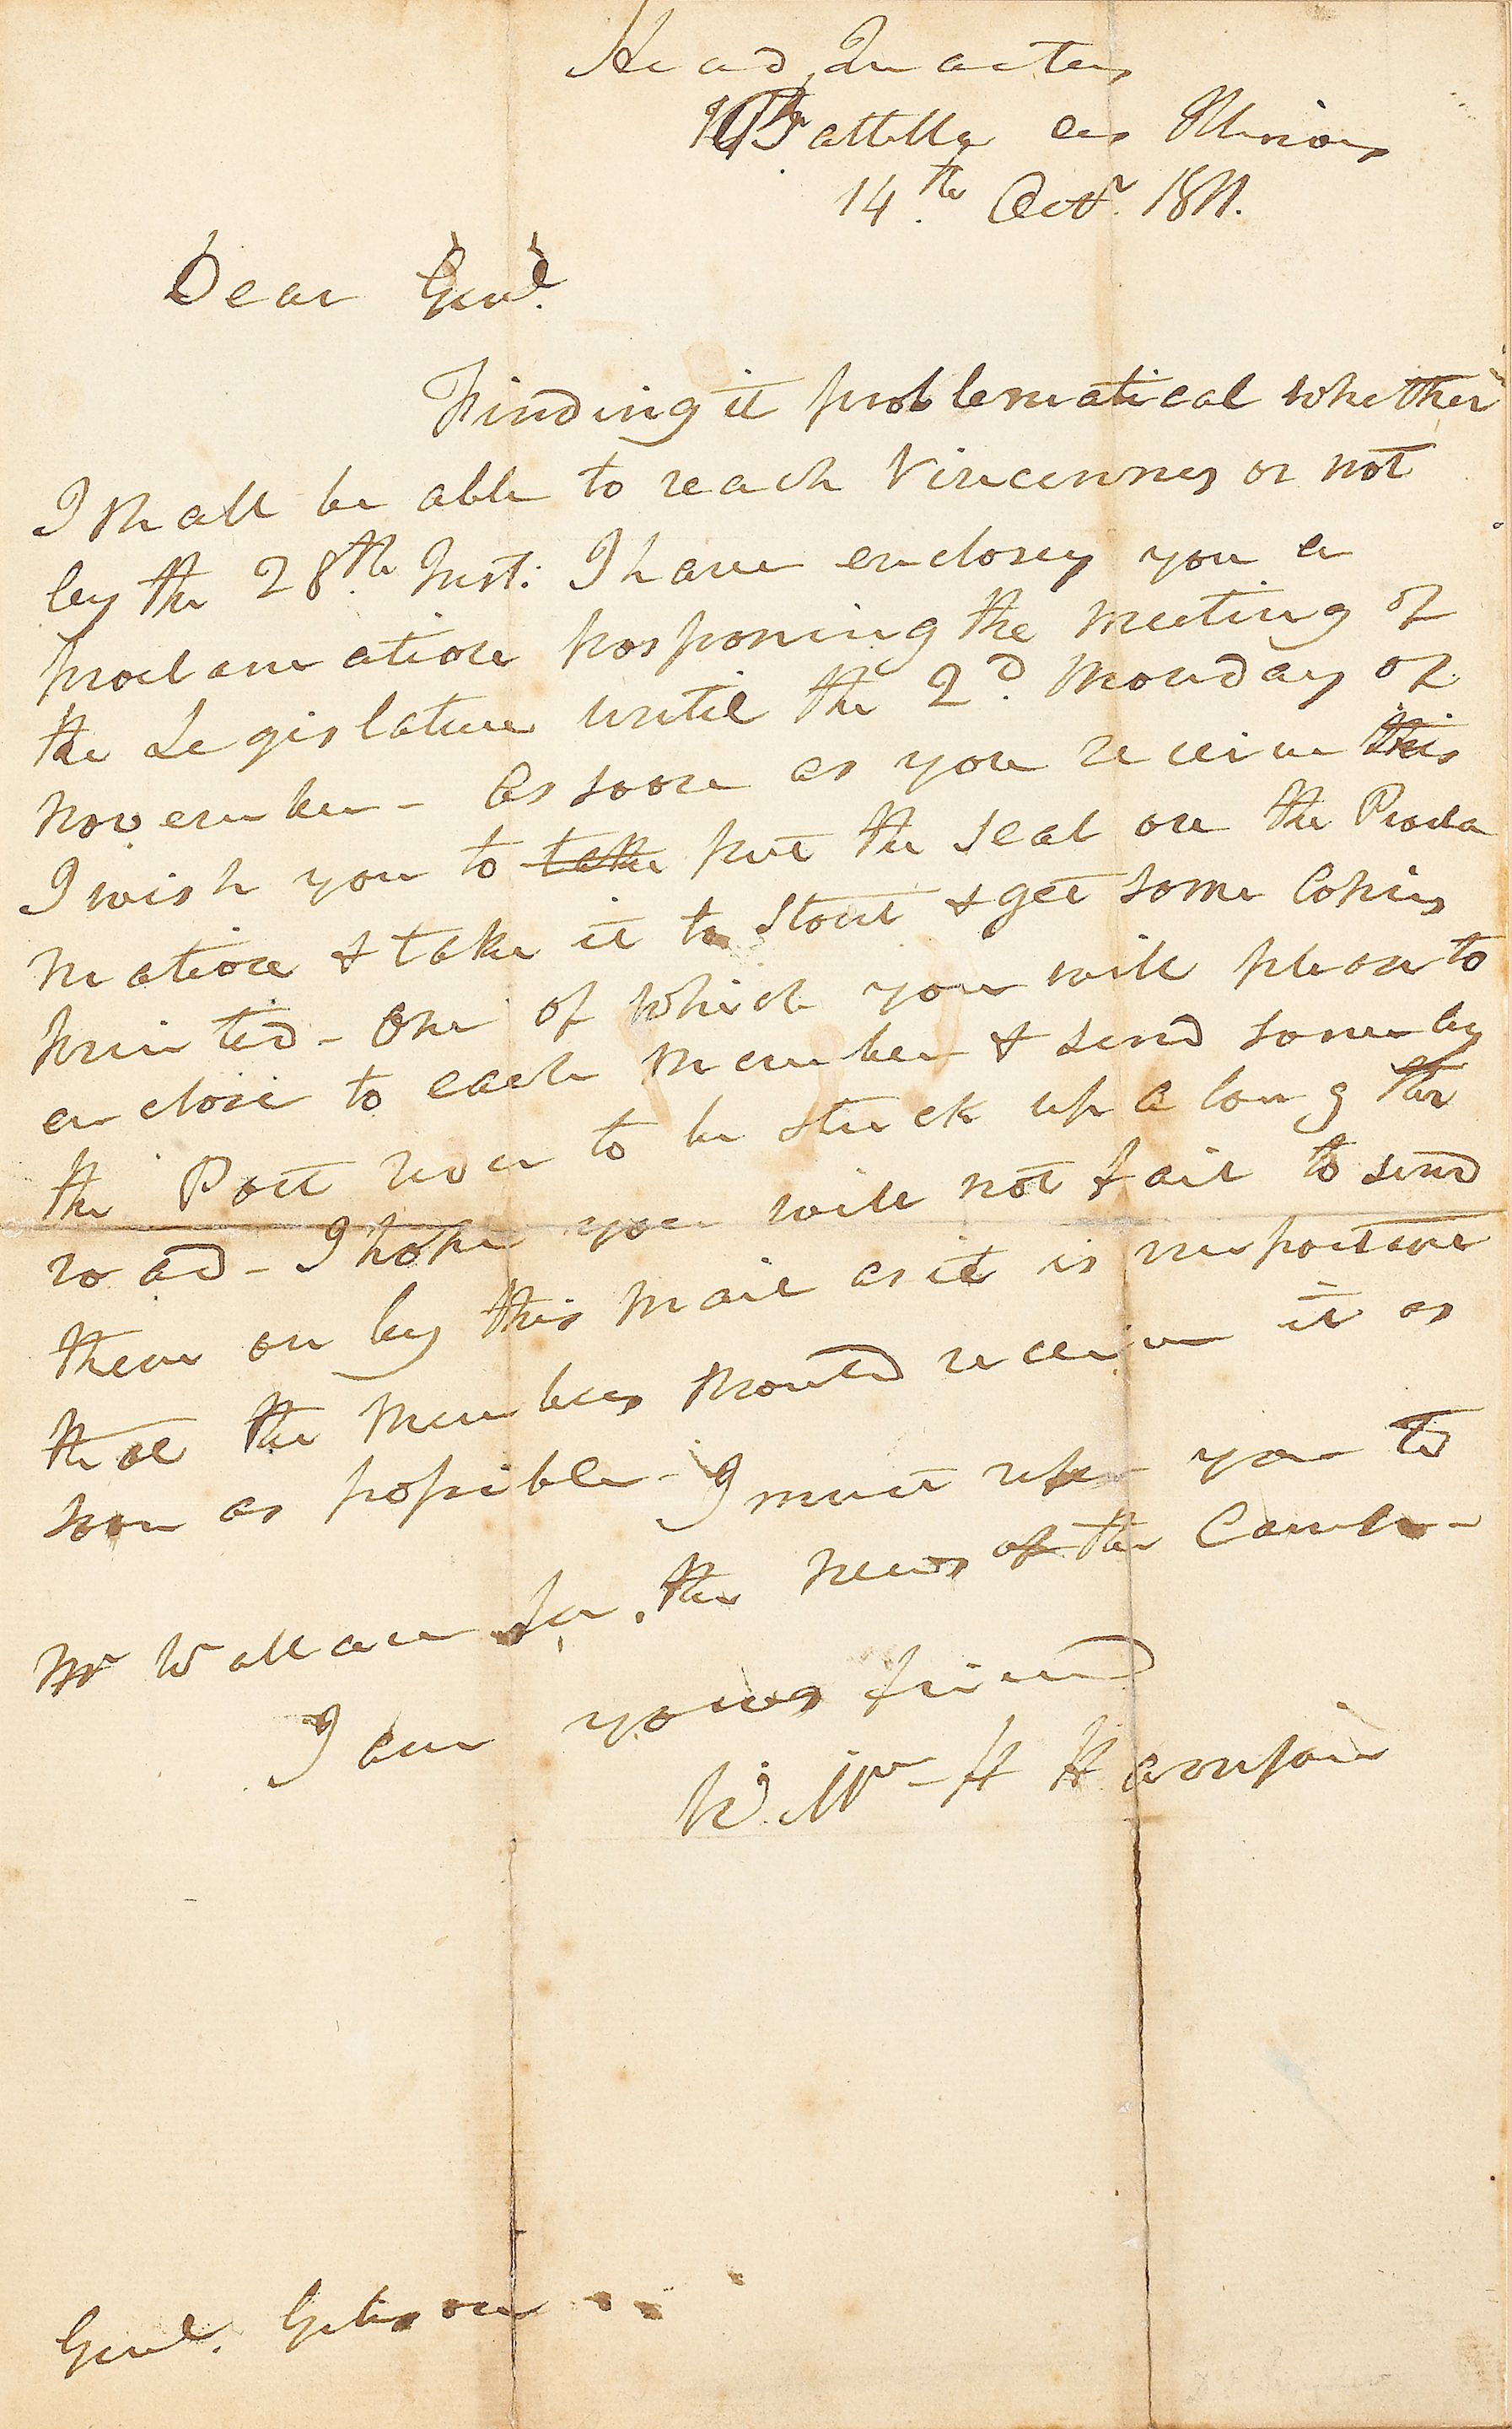 Head Quarters
Battelle des Illinois
14.th Octr. 1811.
Dear Genl.
Finding it problematical whether
I shall be able to reach Vincennes or not
by the 28.th Inst: I have enclosed you a
proclamation posponing the meeting of
the Legislature until the 2d. Monday of
November - As soon as you receive this
I wish you to take put the seal on the Procla
mation & take it to Stout & get some Copies
printed - One of which you will please to
enclose to each Member & send some by
the Post rider to be stuck up along the
road - I hope you will not fail to send
them on by this Mail as it is important
that the Members should receive it as
soon as possible - I must refer you to
Mr Wallace for the news of the Camp -
I am your friend
Willm H Harrison
Genl. Gibson